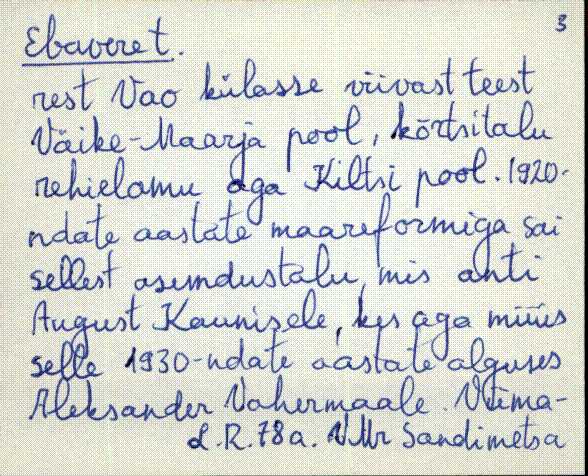 3
Ebavere t.
rest Vao külasse viivast teest
Väike-Maarja pool, kõrtsitalu
rehielamu aga Kiltsi pool. 1920-
ndate aastate maareformiga sai
sellest asundustalu, mis anti
August Kaunisele, kes aga müüs
selle 1930-ndate aastate alguses
Aleksander Vahermaale. Viima-
L.R. 78a. VMr Sandimetsa